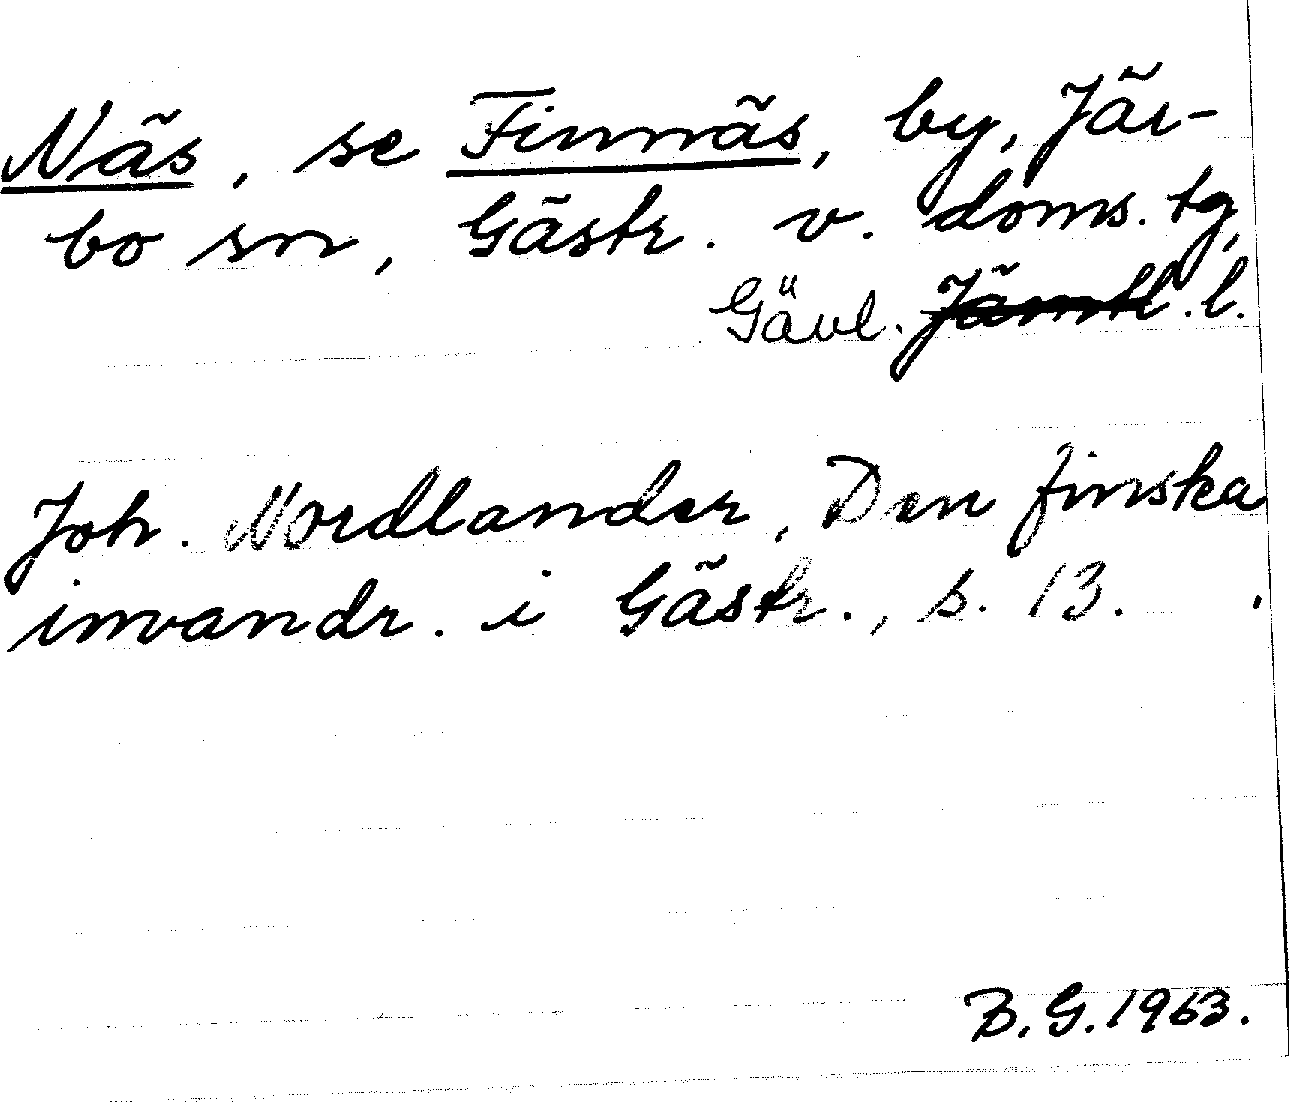 Näs, se Finnäs, by, Jär-
bo sn, Gästr. v. doms. tg,
Gävl. Jämtl. l.
Joh. Nordlander, Den finska
invandr. i Gästr., s. 13.
B. G. 1963.